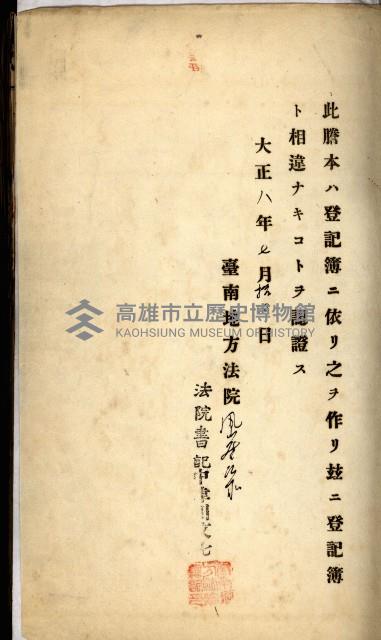 此謄本ハ登記簿ニ依リ之ヲ作リ玆ニ登記簿
ト相違ナキコトヲ認證ス
大正八年七月拾 日
臺南地方法院
法院書記
高雄市立歷史博物館
KAOHSIUNG MUSEUM OF HISTORY